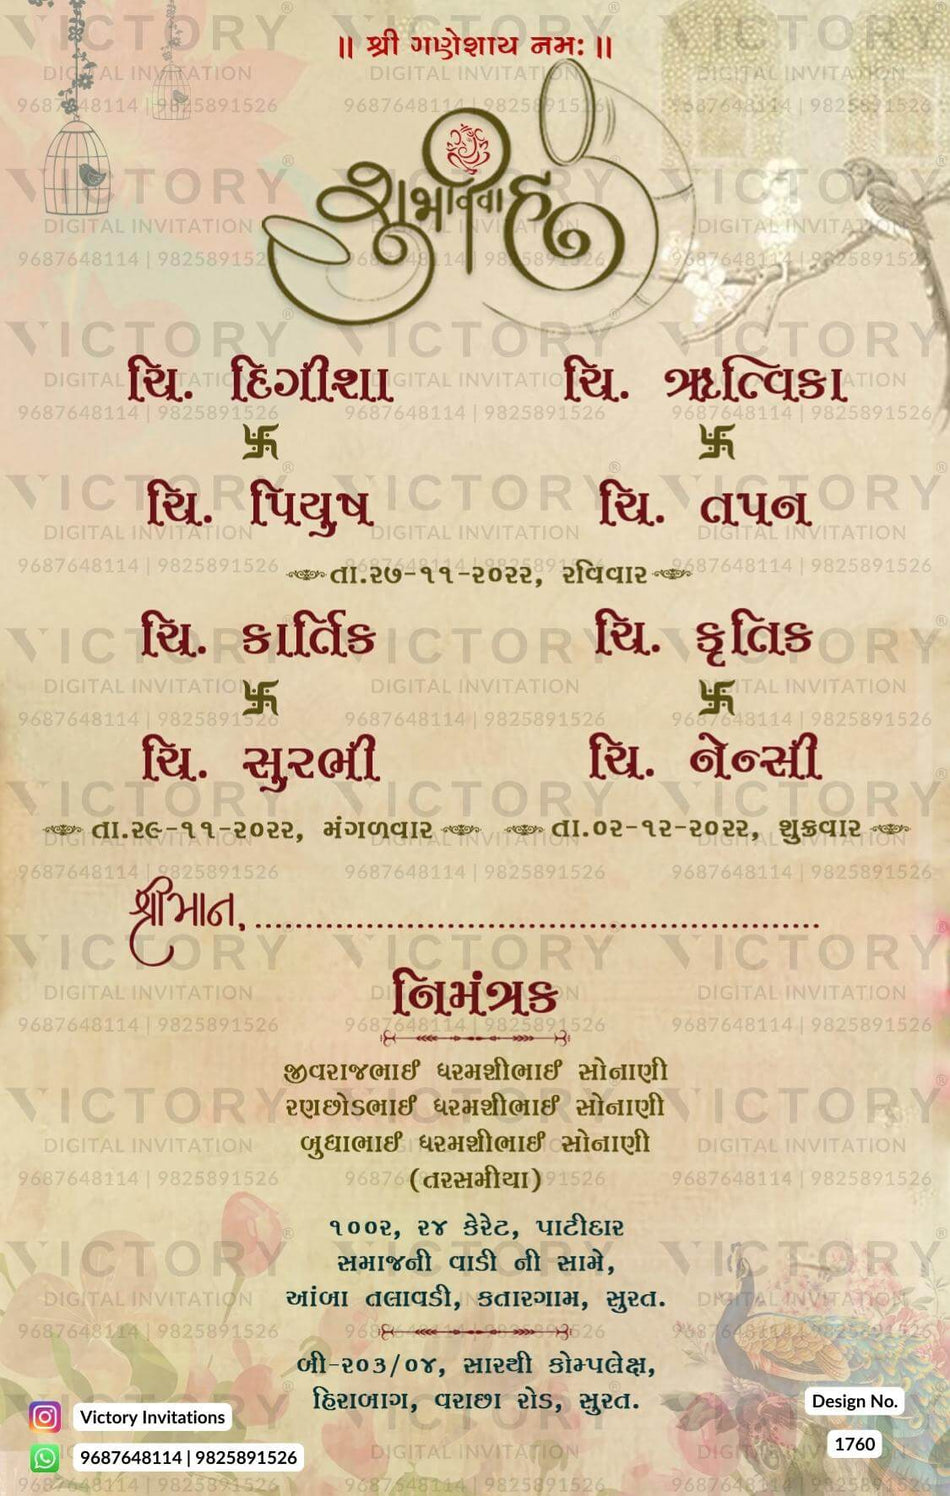 ॥ શ્રી ગણેશાય નમઃ ॥
શુભવિવાહ
ચિ. દિગીશા
ચિ. ઋત્વિકા
ચિ. પિયુષ
ચિ. તપન
તા.૨૭-૧૧-૨૦૨૨, રવિવાર
ચિ. કાર્તિક
ચિ. કૃતિક
ચિ. સુરભી
ચિ. નેન્સી
તા.૨૯-૧૧-૨૦૨૨, મંગળવાર
તા.૦૨-૧૨-૨૦૨૨, શુક્રવાર
શ્રીમાન, ......................................................
નિમંત્રક
જીવરાજભાઈ ધરમશીભાઈ સોનાણી
રણછોડભાઈ ધરમશીભાઈ સોનાણી
બુધાભાઈ ધરમશીભાઈ સોનાણી
(તરસમીયા)
૧૦૦૨, ૨૪ કેરેટ, પાટીદાર
સમાજની વાડી ની સામે,
આંબા તલાવડી, કતારગામ, સુરત.
બી-૨૦૩/૦૪, સારથી કોમ્પલેક્ષ,
હિરાબાગ, વરાછા રોડ, સુરત.
Victory Invitations
9687648114 | 9825891526
Design No.
1760
VICTORY®
DIGITAL INVITATION
9687648114 | 9825891526